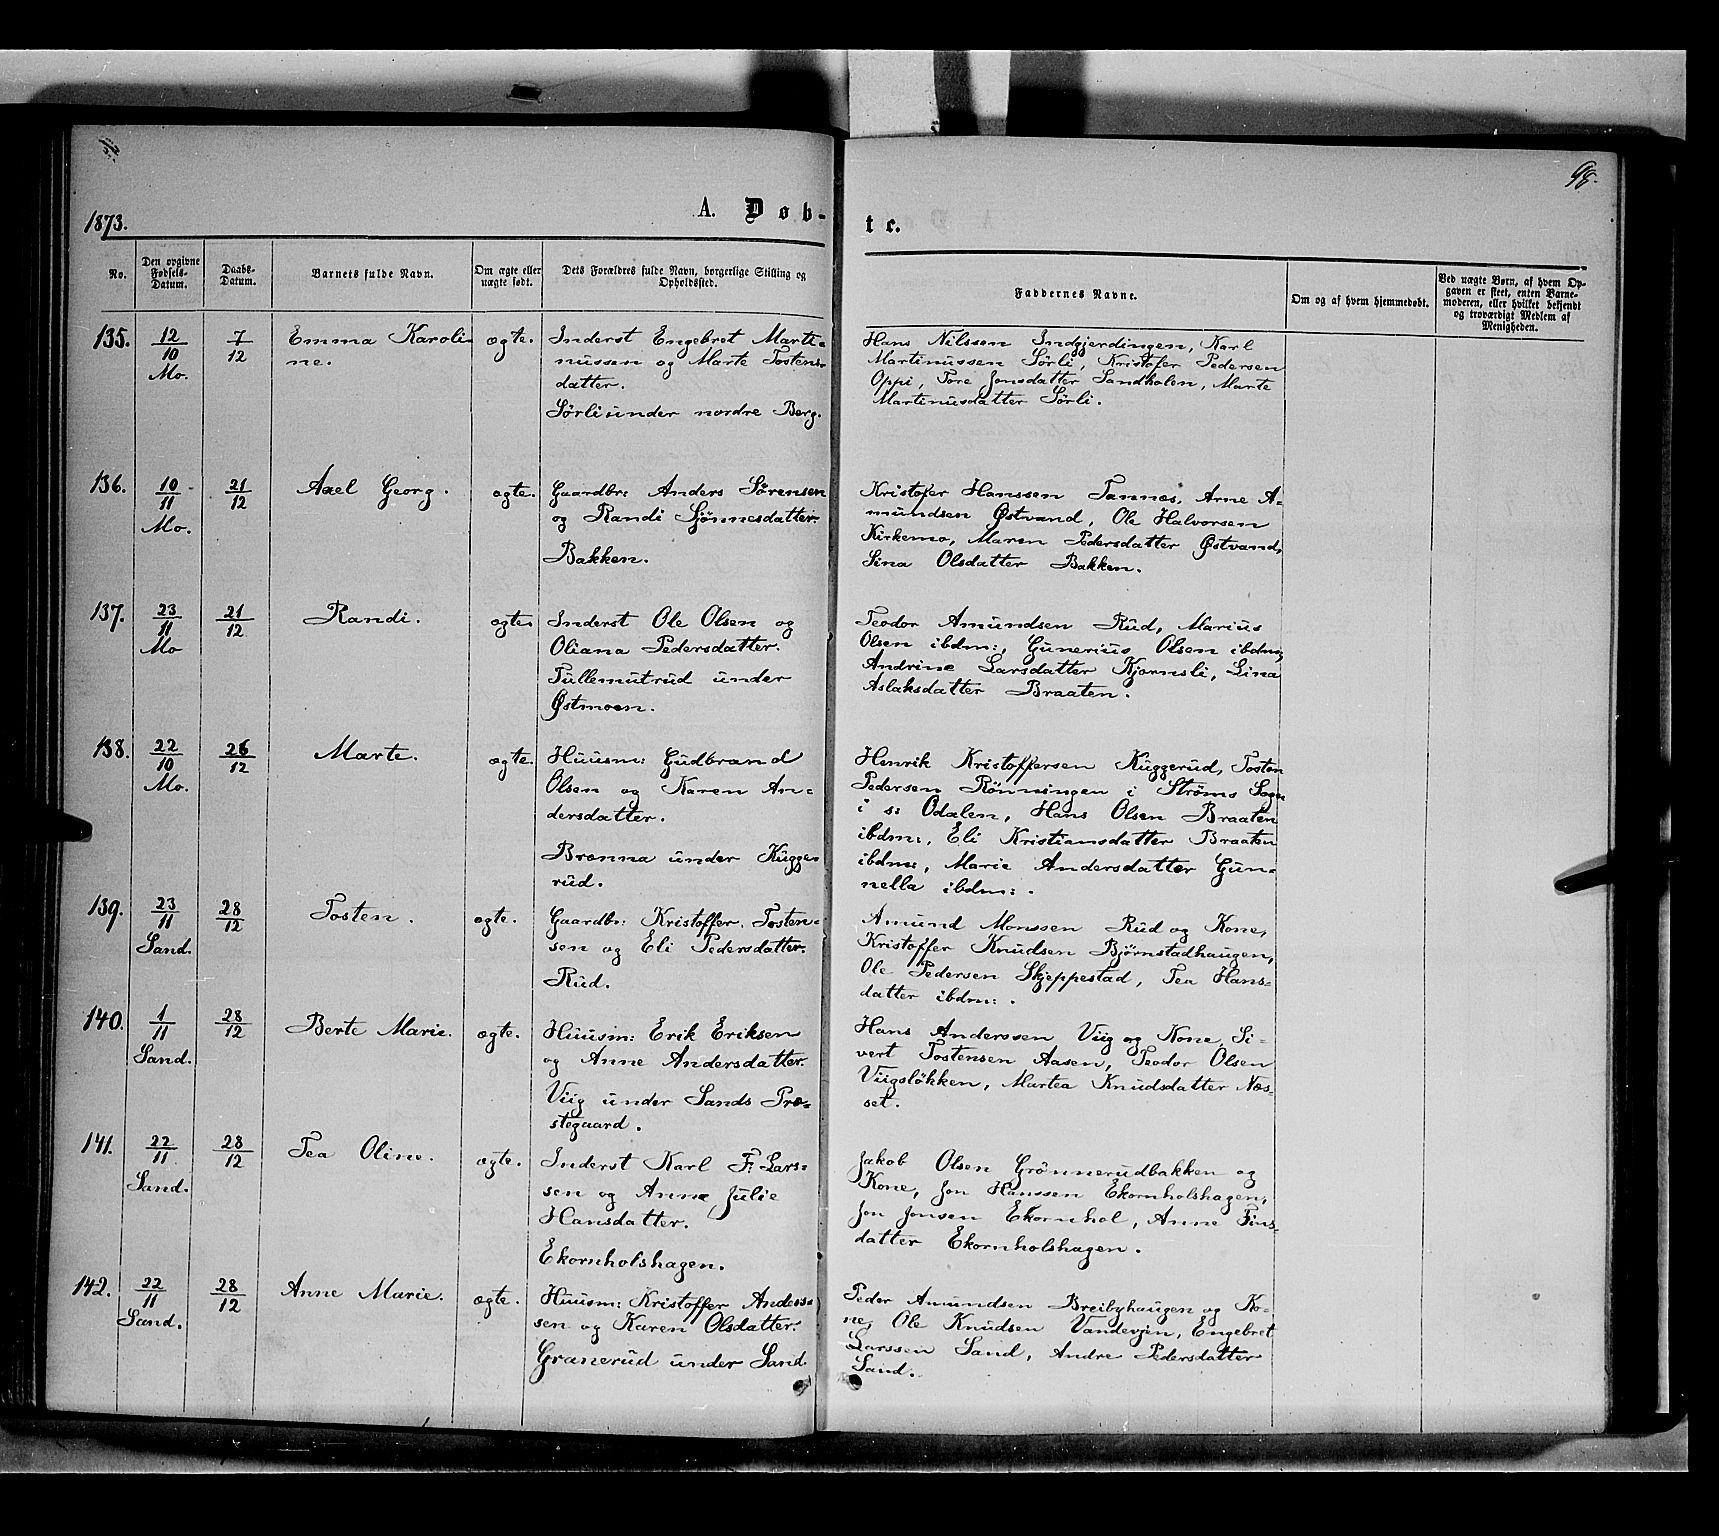 98.
1873.
A. Døb-
te.
No.
Den opgivne Fødsels-Datum.
Daabs-Datum.
Barnets fulde Navn.
Om ægte eller uægte født.
Dets Forældres fulde Navn, borgerlige Stilling og Opholdssted.
Faddernes Navne.
Om og af hvem hjemmedøbt.
Ved uægte Børn, af hvem Opgaven er skeet, enten Barnemoderen, eller hvilket bekjendt og troværdigt Medlem af Menigheden.
135. 12/10 Mo. 7/12 Emma Karoli-
ne. ægte.
Inderst Engebret Marti-
nussen og Marte Tostens-
datter.
Sørli under nordre Berg.
Hans Nilssen Indgjerdingen, Karl
Martinussen Sørli, Kristofer Pedersen
Oppi, Tore Jonsdatter Sandholen, Marte
Martinusdatter Sørli.
136. 10/11 Mo. 21/12 Axel Georg. ægte.
Gaardbr: Anders Sørensen
og Randi Sjønnesdatter.
Bakken.
Kristofer Hanssen Tannæs, Arne A-
mundsen Østvand, Ole Halvorsen
Kirkemo, Maren Pedersdatter Østvand,
Sina Olsdatter Bakken.
137. 23/11 Mo 21/12 Randi. ægte.
Inderst Ole Olsen og
Oliana Pedersdatter.
Tullemutrud under
Østmoen.
Teodor Amundsen Rud, Marius
Olsen ibdm:, Gunerius Olsen ibdm,
Andrine Larsdatter Kjørnsli, Lina
Aslaksdatter Braaten.
138. 22/10 Mo. 26/12 Marte. ægte.
Huusm: Gudbrand
Olsen og Karen An-
dersdatter.
Brænna under Kugge-
rud.
Henrik Kristoffersen Kuggerud, Tosten
Pedersen Rönningen i Strøms Sogn
i s: Odalen, Hans Olsen Braaten
ibdm:, Eli Kristiansdatter Braaten
ibdm:, Marie Andersdatter Gun-
nella ibdm:.
139. 23/11 Sand. 28/12 Tosten. ægte.
Gaardbr: Kristoffer Tosten-
sen og Eli Pedersdatter.
Rud.
Amund Monssen Rud og Kone,
Kristoffer Knudsen Bjørnstadhaugen,
Ole Pedersen Skjeppestad, Tea Hans-
datter ibdm:.
140. 1/11 Sand. 28/12 Berte Marie. ægte.
Huusm: Erik Eriksen
og Anne Andersdatter.
Viig under Sands Præ-
stegaard.
Hans Anderssen Viig og Kone, Si-
vert Tostensen Aasen, Teodor Olsen
Viigsløkken, Martea Knudsdatter Næs-
set.
141. 22/11 Sand. 28/12 Tea Oline. ægte.
Inderst Karl F: Lars-
sen og Anne Julie
Hansdatter.
Ekornholshagen.
Jakob Olsen Grønnerudbakken og
Kone, Jon Hanssen Ekornholshagen,
Jon Jonsen Ekornhol, Anne Fins-
datter Ekornholshagen.
142. 22/11 Sand. 28/12 Anne Marie. ægte.
Huusm: Kristoffer Anders-
sen og Karen Olsdatter.
Granerud under Sand.
Peder Amundsen Breibyhaugen og Ko-
ne, Ole Knudsen Vandevjen, Engebret
Larssen Sand, Andre Pedersdatter
Sand.